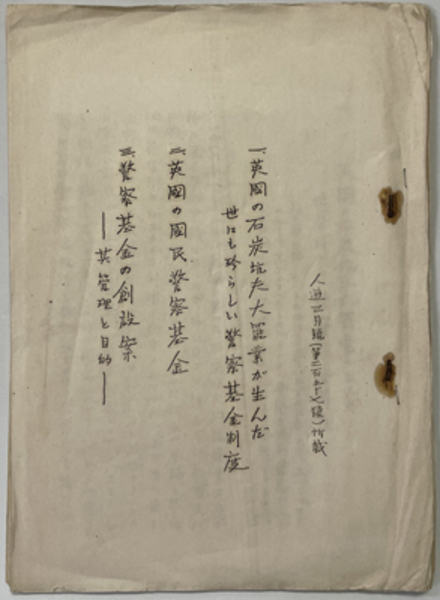 人道三月號(第二百五十七號)所載
一、英國の石炭坑夫大罷業が生んだ
世にも珍らしい警察基金制度
二、英國の國民警察基金
三、警察基金の創設案
――其管理と目的――